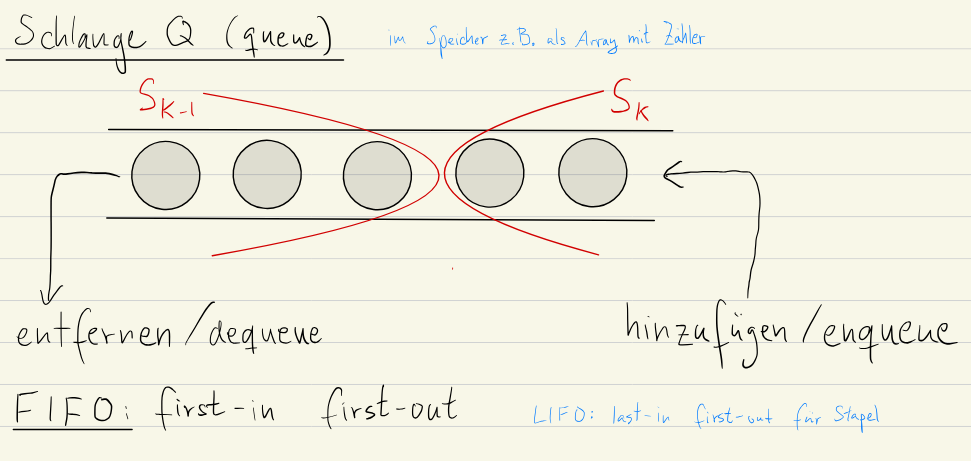 Schlange Q (queue)
im Speicher z.B. als Array mit Zähler
S_{K-1}
S_K
entfernen/dequeue
hinzufügen/enqueue
FIFO: first-in first-out
LIFO: last-in first-out für Stapel